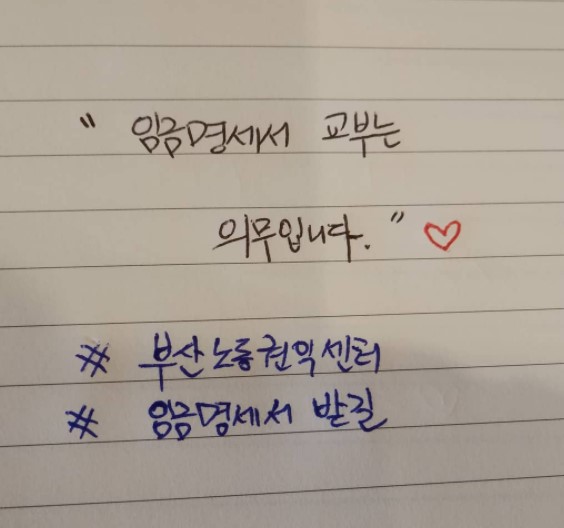 " 임금명세서 교부는
의무입니다. " ♡
# 부산노동권익센터
# 임금명세서 받길